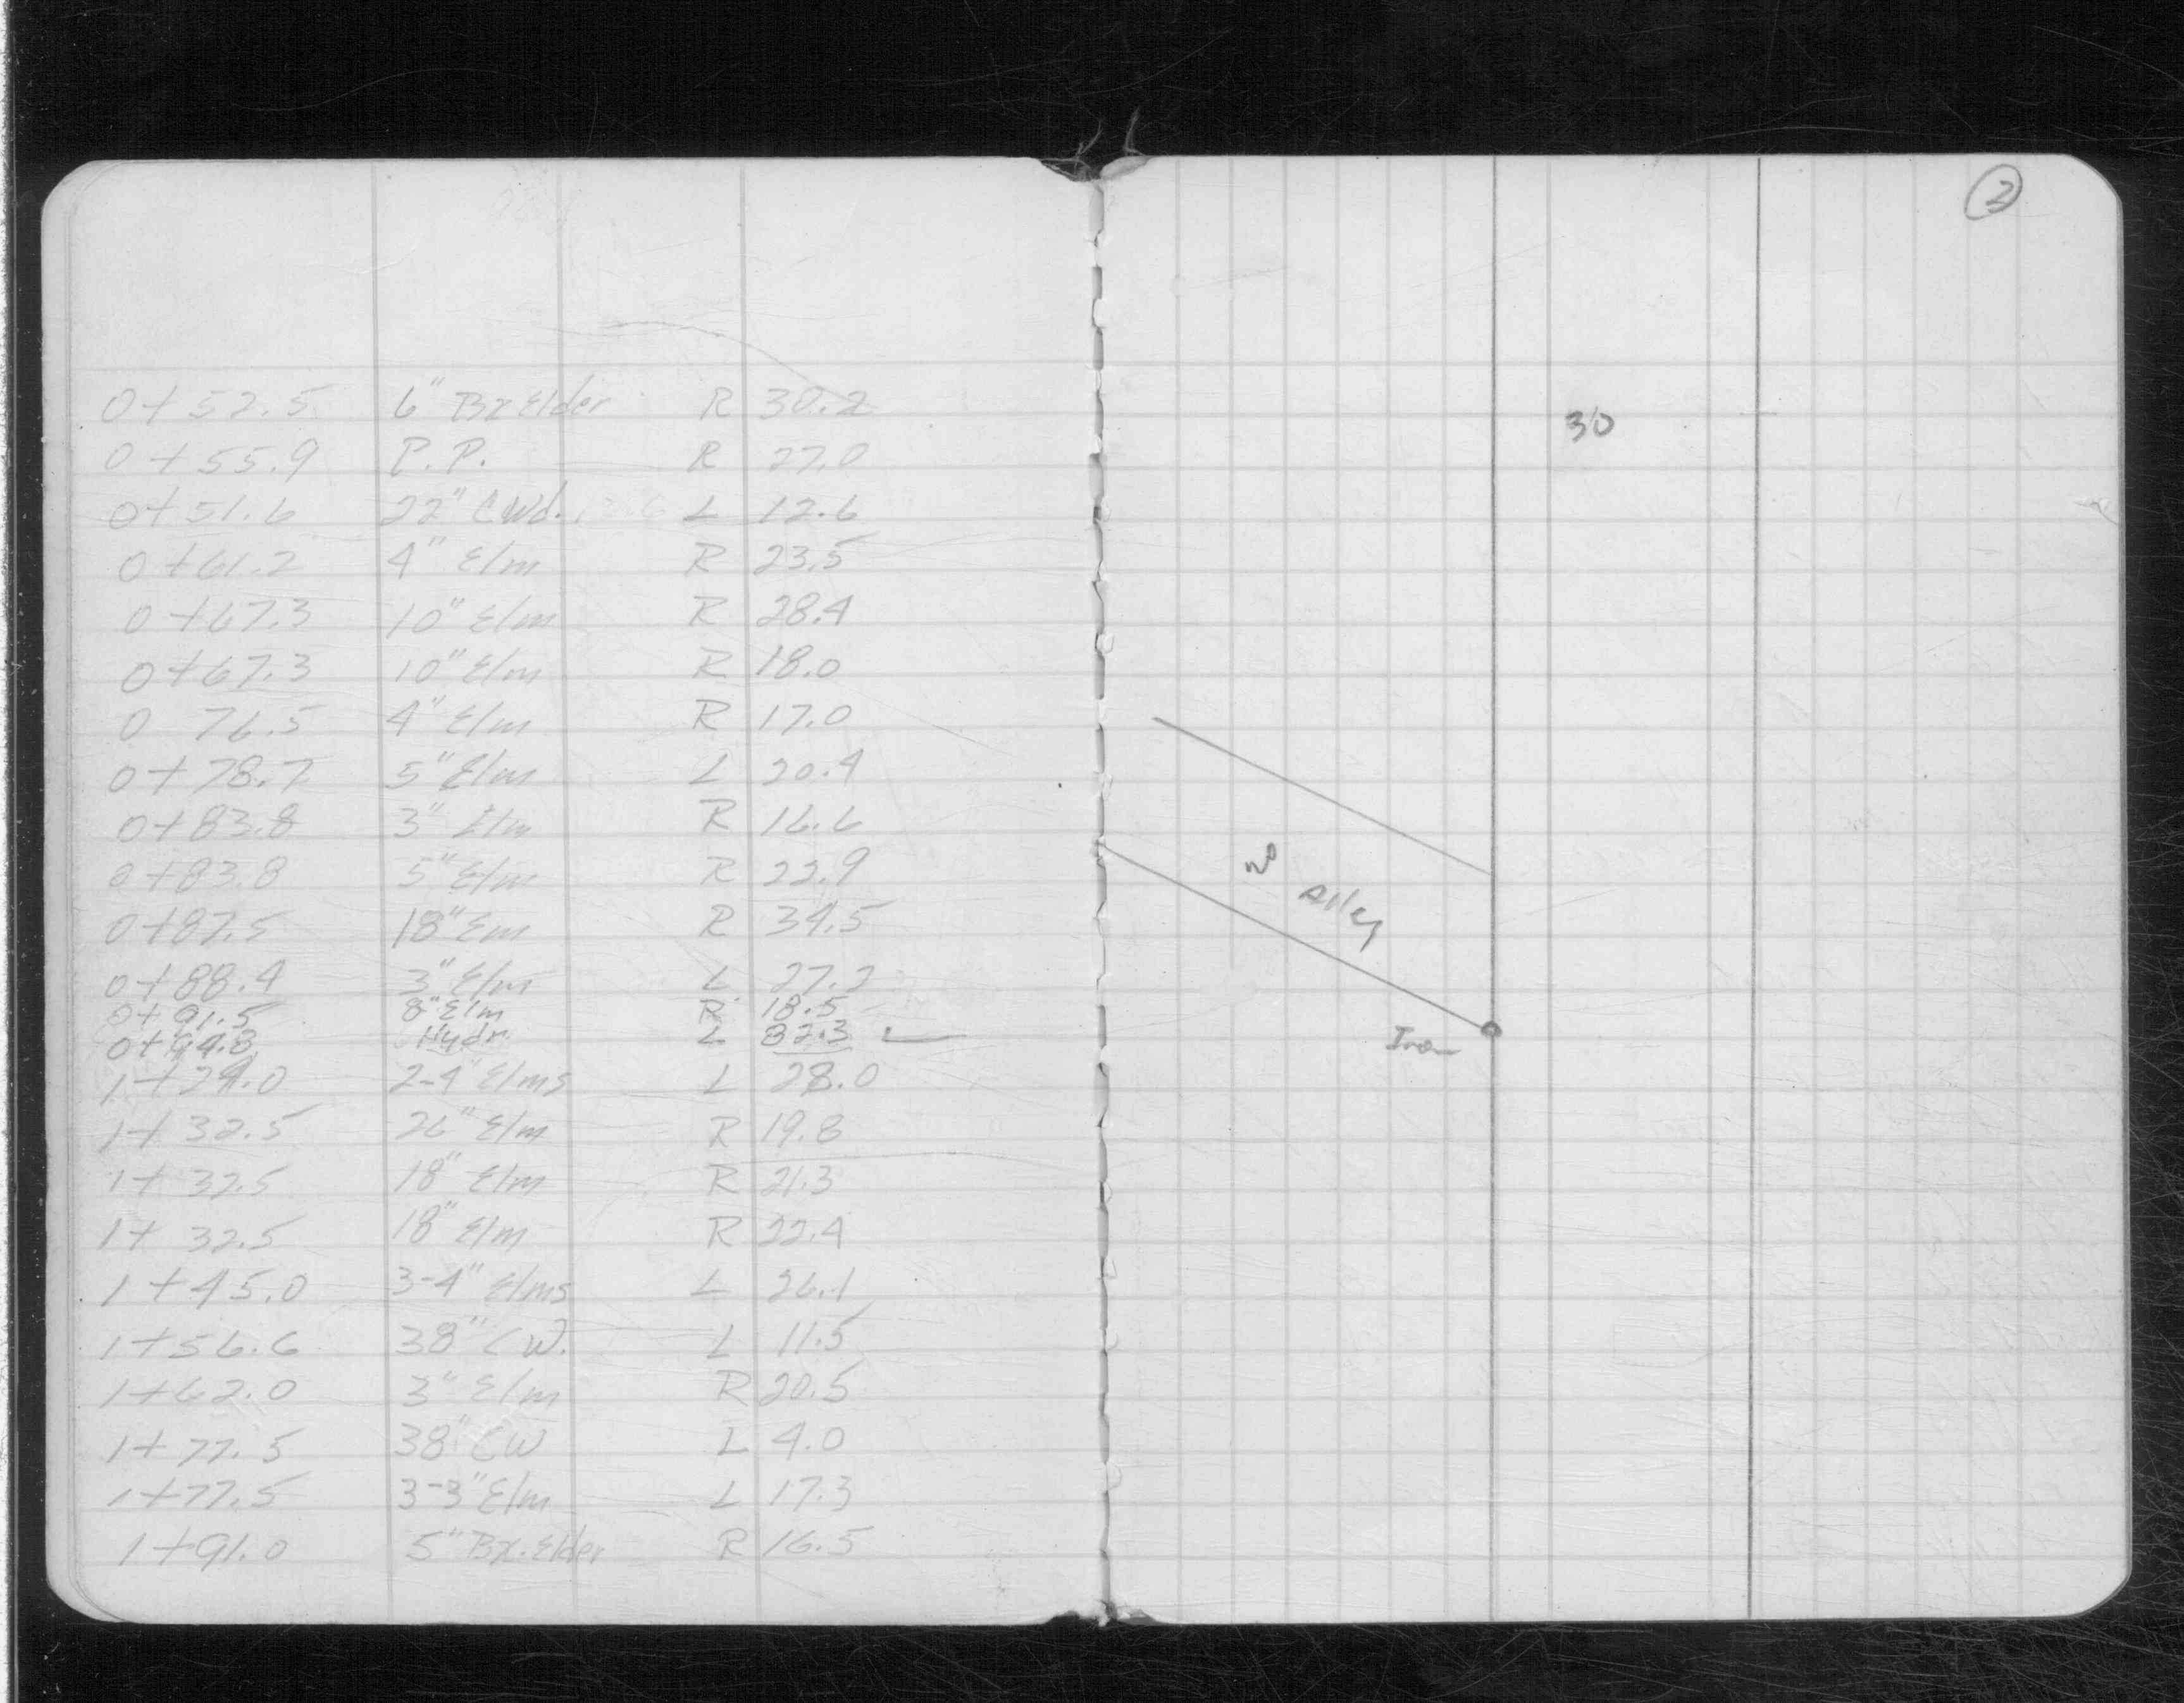 0+52.5 6" Bx Elder R 30.2
0+55.9 P.P. R 27.0
0+51.6 22" CWd. L 12.6
0+61.2 4" Elm R 23.5
0+67.3 10" Elm R 28.4
0+67.3 10" Elm R 18.0
0 76.5 4" Elm R 17.0
0+78.7 5" Elm L 20.4
0+83.8 3" Elm R 16.6
0+83.8 5" Elm R 22.9
0+87.5 18" Em R 34.5
0+88.4 3" Elm L 27.2
0+91.5 8" Elm R 18.5
0+94.8 Hydr. L 32.3
1+29.0 2-4" Elms L 28.0
1+32.5 26" Elm R 19.8
1+32.5 18" Elm R 21.3
1+32.5 18" Elm R 22.4
1+45.0 3-4" Elms L 26.1
1+56.6 38" CW. L 11.5
1+62.0 3" Elm R 20.5
1+77.5 38" CW L 4.0
1+77.5 3-3" Elm L 17.3
1+91.0 5" Bx. Elder R 16.5
2
30
20 Alley
Iron